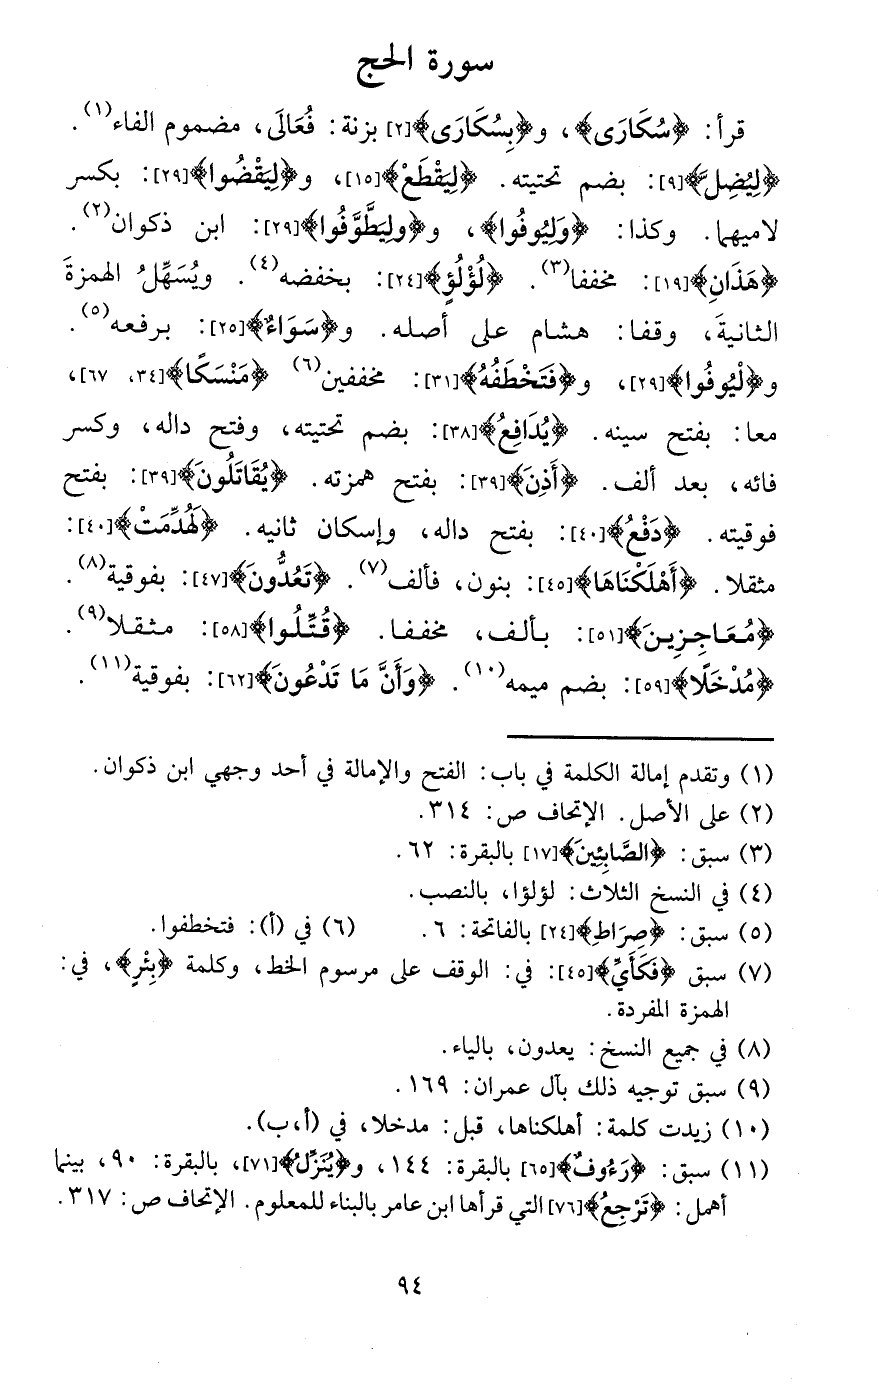 سورة الحج
قرأ: ﴿سُكَارَى﴾، و﴿بِسُكَارَى﴾[٢] بزنة: فُعَالَى، مضموم الفاء(١).
﴿لِيُضِلَّ﴾[٩]: بضم تحتيته. ﴿لِيَقْطَعْ﴾[١٥]، و﴿لِيَقْضُوا﴾[٢٩]: بكسر
لاميهما. وكذا: ﴿وَلِيُوفُوا﴾، و﴿ولِيَطَّوَّفُوا﴾[٢٩]: ابن ذكوان(٢).
﴿هَذَانِ﴾[١٩]: مخففا(٣). ﴿لُؤْلُؤٍ﴾[٢٤]: بخفضه(٤). ويُسَهِّلُ الهمزةَ
الثانيةَ، وقفا: هشام على أصله. و﴿سَوَاءٌ﴾[٢٥]: برفعه(٥).
و﴿لْيُوفُوا﴾[٢٩]، و﴿فَتَخْطَفُهُ﴾[٣١]: مخففين(٦) ﴿مَنْسَكًا﴾[٣٤، ٦٧]،
معا: بفتح سينه. ﴿يُدَافِعُ﴾[٣٨]: بضم تحتيته، وفتح داله، وكسر
فائه، بعد ألف. ﴿أَذِنَ﴾[٣٩]: بفتح همزته. ﴿يُقَاتَلُونَ﴾[٣٩]: بفتح
فوقيته. ﴿دَفْعُ﴾[٤٠]: بفتح داله، وإسكان ثانيه. ﴿لَهُدِّمَتْ﴾[٤٠]:
مثقلا. ﴿أَهْلَكْنَاهَا﴾[٤٥]: بنون، فألف(٧). ﴿تَعُدُّونَ﴾[٤٧]: بفوقية(٨).
﴿مُعَاجِزِينَ﴾[٥١]: بألف، مخففا. ﴿قُتِّلُوا﴾[٥٨]: مثقلا(٩).
﴿مُدْخَلًا﴾[٥٩]: بضم ميمه(١٠). ﴿وَأَنَّ مَا تَدْعُونَ﴾[٦٢]: بفوقية(١١).
(١) وتقدم إمالة الكلمة في باب: الفتح والإمالة في أحد وجهي ابن ذكوان.
(٢) على الأصل. الإتحاف ص: ٣١٤.
(٣) سبق: ﴿الصَّابِئِينَ﴾[١٧] بالبقرة: ٦٢.
(٤) في النسخ الثلاث: لؤلؤا، بالنصب.
(٥) سبق: ﴿صِرَاطِ﴾[٢٤] بالفاتحة: ٦. (٦) في (أ): فتخطفوا.
(٧) سبق ﴿فَكَأَيِّ﴾[٤٥]: في: الوقف على مرسوم الخط، وكلمة ﴿بِئْرٍ﴾، في:
الهمزة المفردة.
(٨) في جميع النسخ: يعدون، بالياء.
(٩) سبق توجيه ذلك بآل عمران: ١٦٩.
(١٠) زيدت كلمة: أهلكناها، قبل: مدخلا، في (أ،ب).
(١١) سبق: ﴿رَءُوفٌ﴾[٦٥] بالبقرة: ١٤٤، و﴿يُنَزِّلُ﴾[٧١]، بالبقرة: ٩٠، بينما
أهمل: ﴿تَرْجِعُ﴾[٧٦] التي قرأها ابن عامر بالبناء للمعلوم. الإتحاف ص: ٣١٧.
٩٤